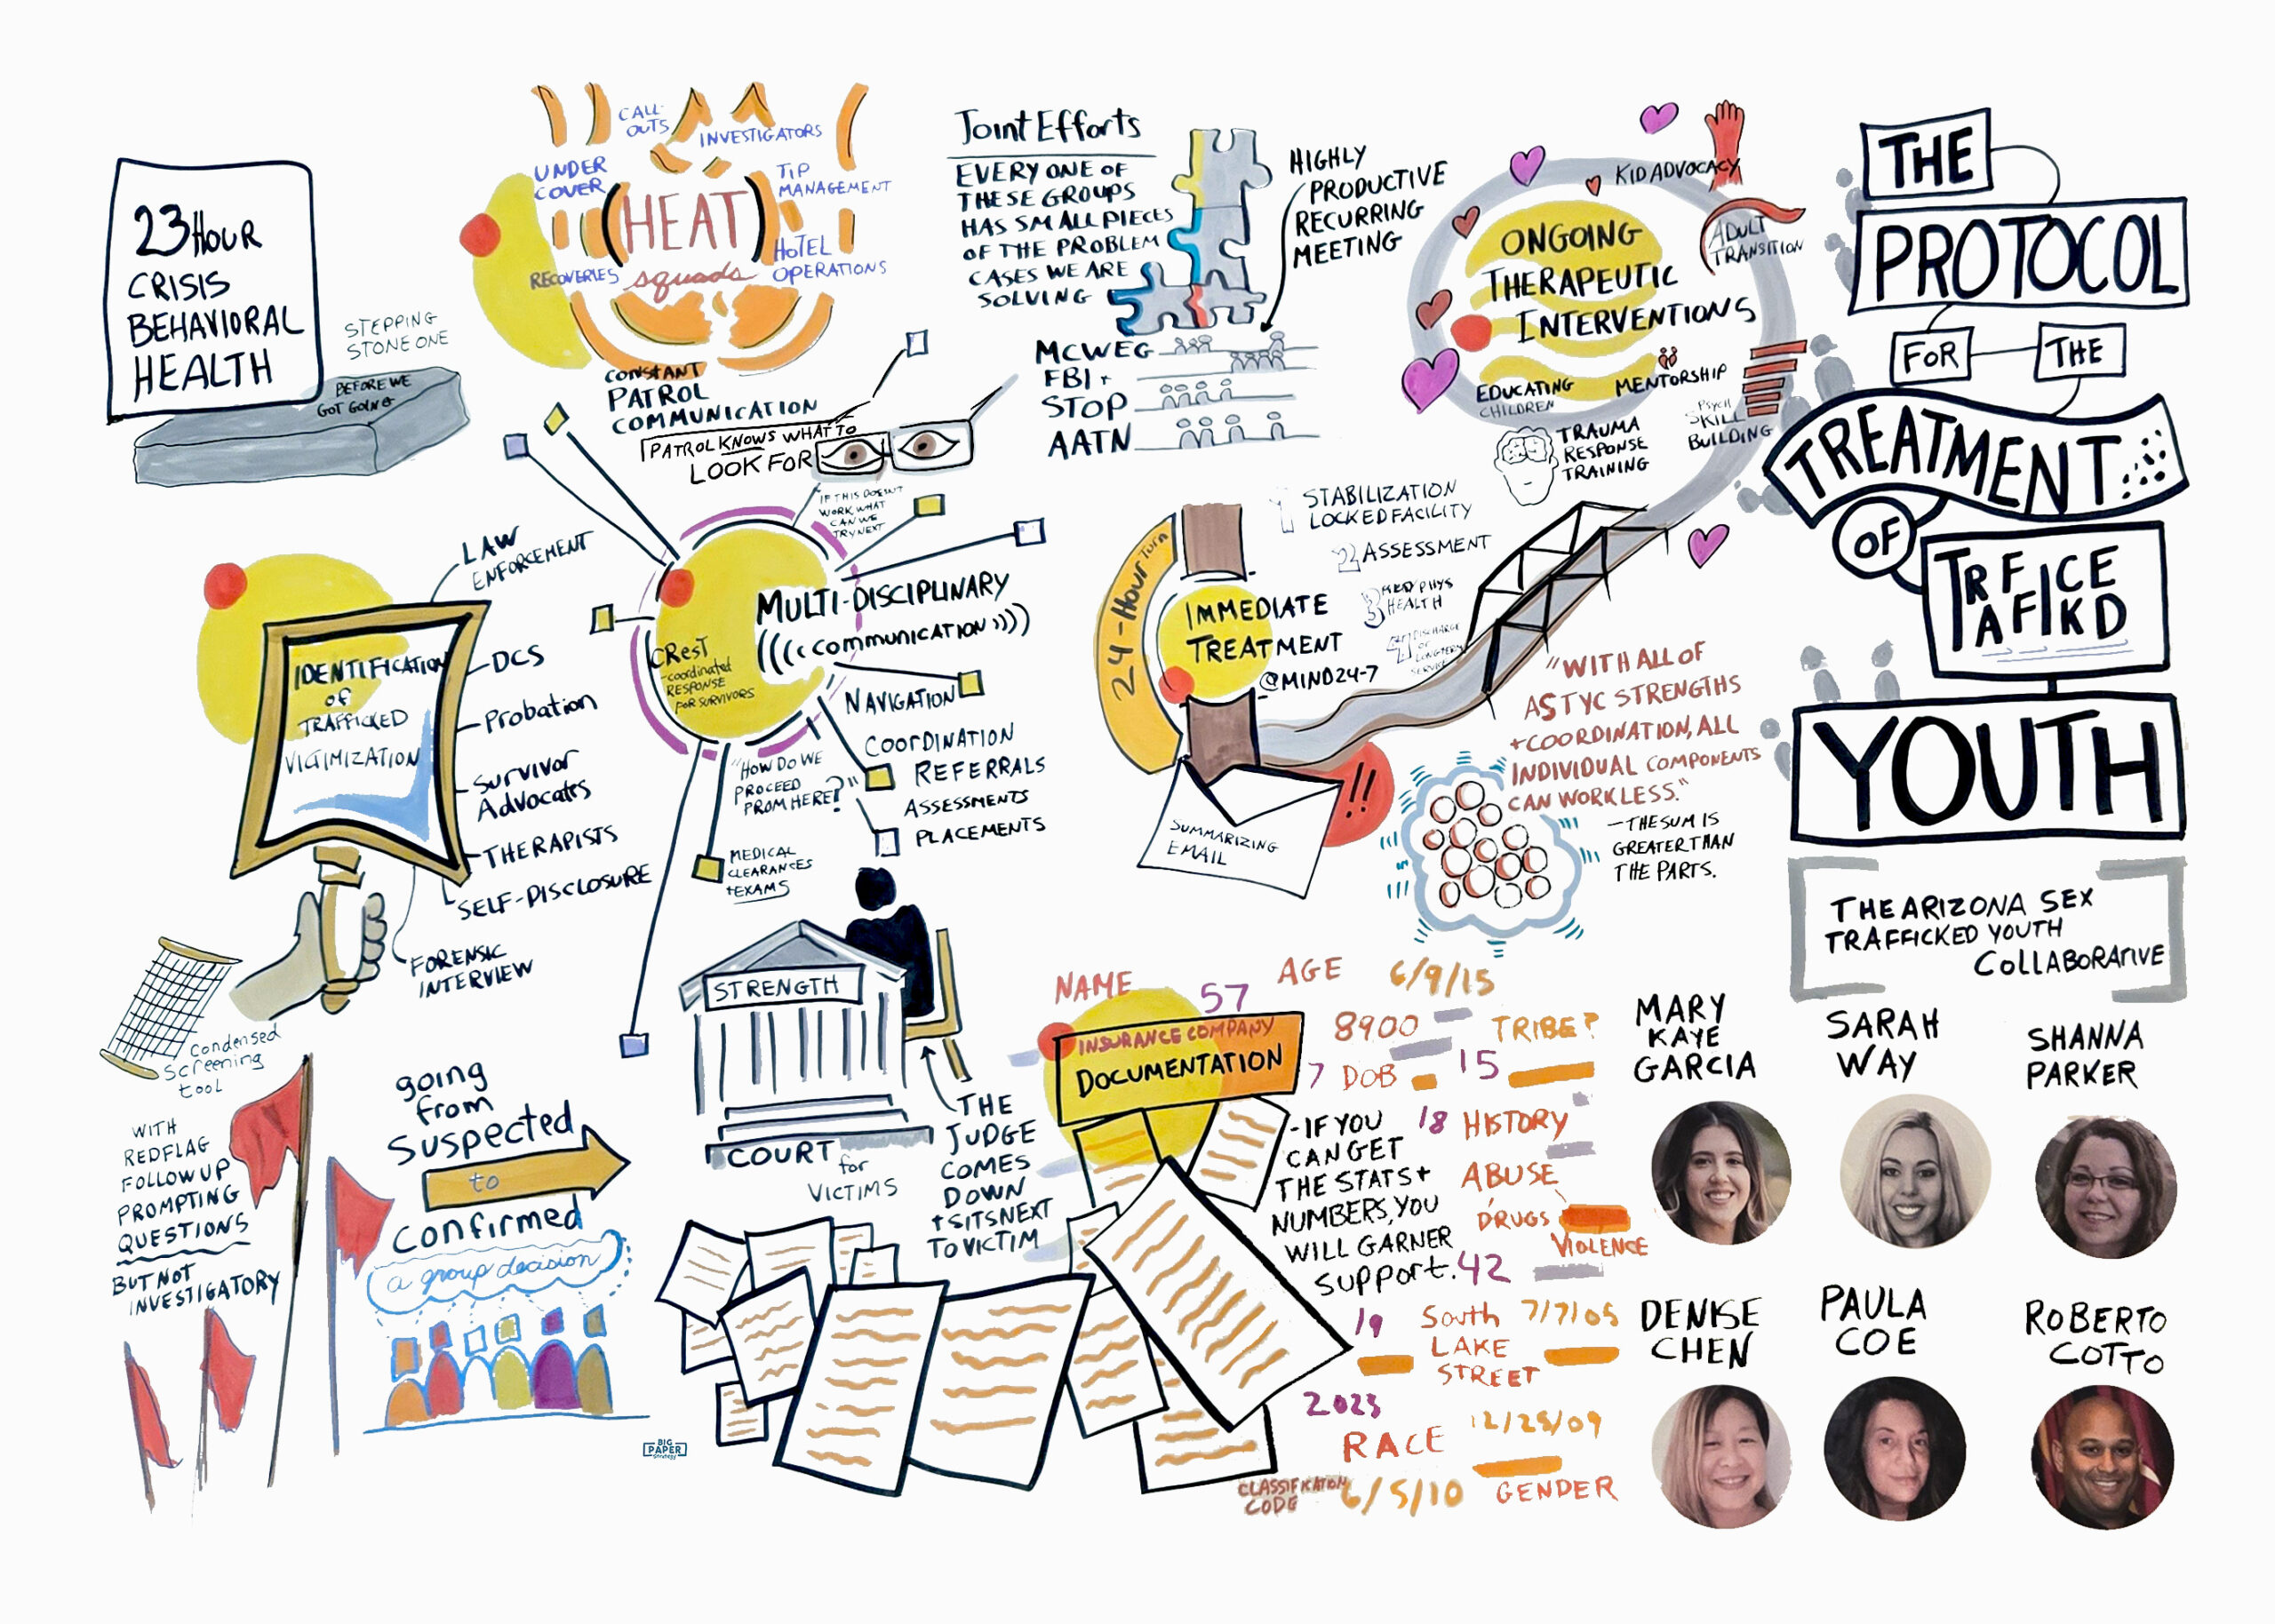 23 HOUR
CRISIS
BEHAVIORAL
HEALTH
STEPPING
STONE ONE
BEFORE WE
GOT GOING
CALL
OUTS
INVESTIGATORS
UNDER
COVER
TIP
MANAGEMENT
(HEAT)
squads
HOTEL
OPERATIONS
RECOVERIES
CONSTANT
PATROL
COMMUNICATION
PATROL KNOWS WHAT TO
LOOK FOR
Joint Efforts
EVERY ONE OF
THESE GROUPS
HAS SMALL PIECES
OF THE PROBLEM
CASES WE ARE
SOLVING
HIGHLY
PRODUCTIVE
RECURRING
MEETING
MCWEG
FBI +
STOP
AATN
KID ADVOCACY
ADULT
TRANSITION
ONGOING
THERAPEUTIC
INTERVENTIONS
EDUCATING
CHILDREN
MENTORSHIP
PSYCH
SKILL
BUILDING
TRAUMA
RESPONSE
TRAINING
THE
PROTOCOL
FOR
THE
TREATMENT
OF
TRAFFICKED
YOUTH
THE ARIZONA SEX
TRAFFICKED YOUTH
COLLABORATIVE
LAW
ENFORCEMENT
DCS
Probation
Survivor
Advocates
THERAPISTS
SELF-DISCLOSURE
FORENSIC
INTERVIEW
IDENTIFICATION
OF
TRAFFICKED
VICTIMIZATION
Condensed
Screening
tool
IF THIS DOESN'T
WORK, WHAT
CAN WE
TRY NEXT
MULTI-DISCIPLINARY
((((communication))))
CResT
-coordinated
RESPONSE
FOR SURVIVORS
NAVIGATION
COORDINATION
REFERRALS
ASSESSMENTS
PLACEMENTS
"HOW DO WE
PROCEED
FROM HERE?"
MEDICAL
CLEARANCES
+ EXAMS
24-Hour Turn
IMMEDIATE
TREATMENT
@MIND24-7
1 STABILIZATION
LOCKED FACILITY
2 ASSESSMENT
3
HEALTH
4 DISCHARGE
OF
LONGTERM
SUMMARIZING
EMAIL
!!
"WITH ALL OF
ASTYC STRENGTHS
+ COORDINATION, ALL
INDIVIDUAL COMPONENTS
CAN WORK LESS."
- THE SUM IS
GREATER THAN
THE PARTS.
WITH
RED FLAG
FOLLOW UP
PROMPTING
QUESTIONS
BUT NOT
INVESTIGATORY
going
from
Suspected
to
confirmed
a group decision
STRENGTH
COURT
for
VICTIMS
THE
JUDGE
COMES
DOWN
+ SITS NEXT
TO VICTIM
BIG
PAPER
Strategy
NAME
57
AGE
6/9/15
INSURANCE COMPANY
DOCUMENTATION
8900
TRIBE?
7
DOB
15
- IF YOU
CAN GET
THE STATS +
NUMBERS, YOU
WILL GARNER
SUPPORT.
18
HISTORY
ABUSE
DRUGS
VIOLENCE
42
19
South
LAKE
STREET
7/7/05
2023
RACE
12/25/09
CLASSIFICATION
CODE
6/5/10
GENDER
MARY
KAYE
GARCIA
SARAH
WAY
SHANNA
PARKER
DENISE
CHEN
PAULA
COE
ROBERTO
COTTO